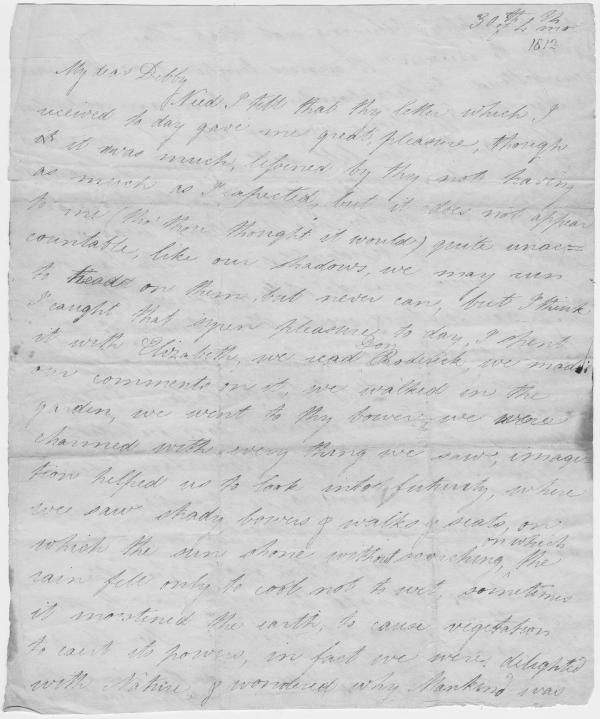 30th of 4th mo
1812
My dear Debby
Need I tell that thy letter which I
received to day gave me great, pleasure, though
it was much, lessened by thy not having
as much as I expected, but it does not appear
to me (tho' thou thought it would) quite unac=
countable, like our shadows, we may run
to tread on them, but never can, but I think
I caught that syren pleasure to day, I spent
it with Elizabeth, we read Don Roderick, we made
our comments on it, we walked in the
garden, we went to thy bower, we were
charmed with every thing we saw, imagin
tion helped us to look into futurity, where
we saw shady bowers & walks & seats, on
which the sun shone without scorching, on which the
rain fell only to cool not to wet, sometimes
it moistened the earth, to cause vegetation
to exert its powers, in fact we were delighted
with Nature, & wondered why Mankind was